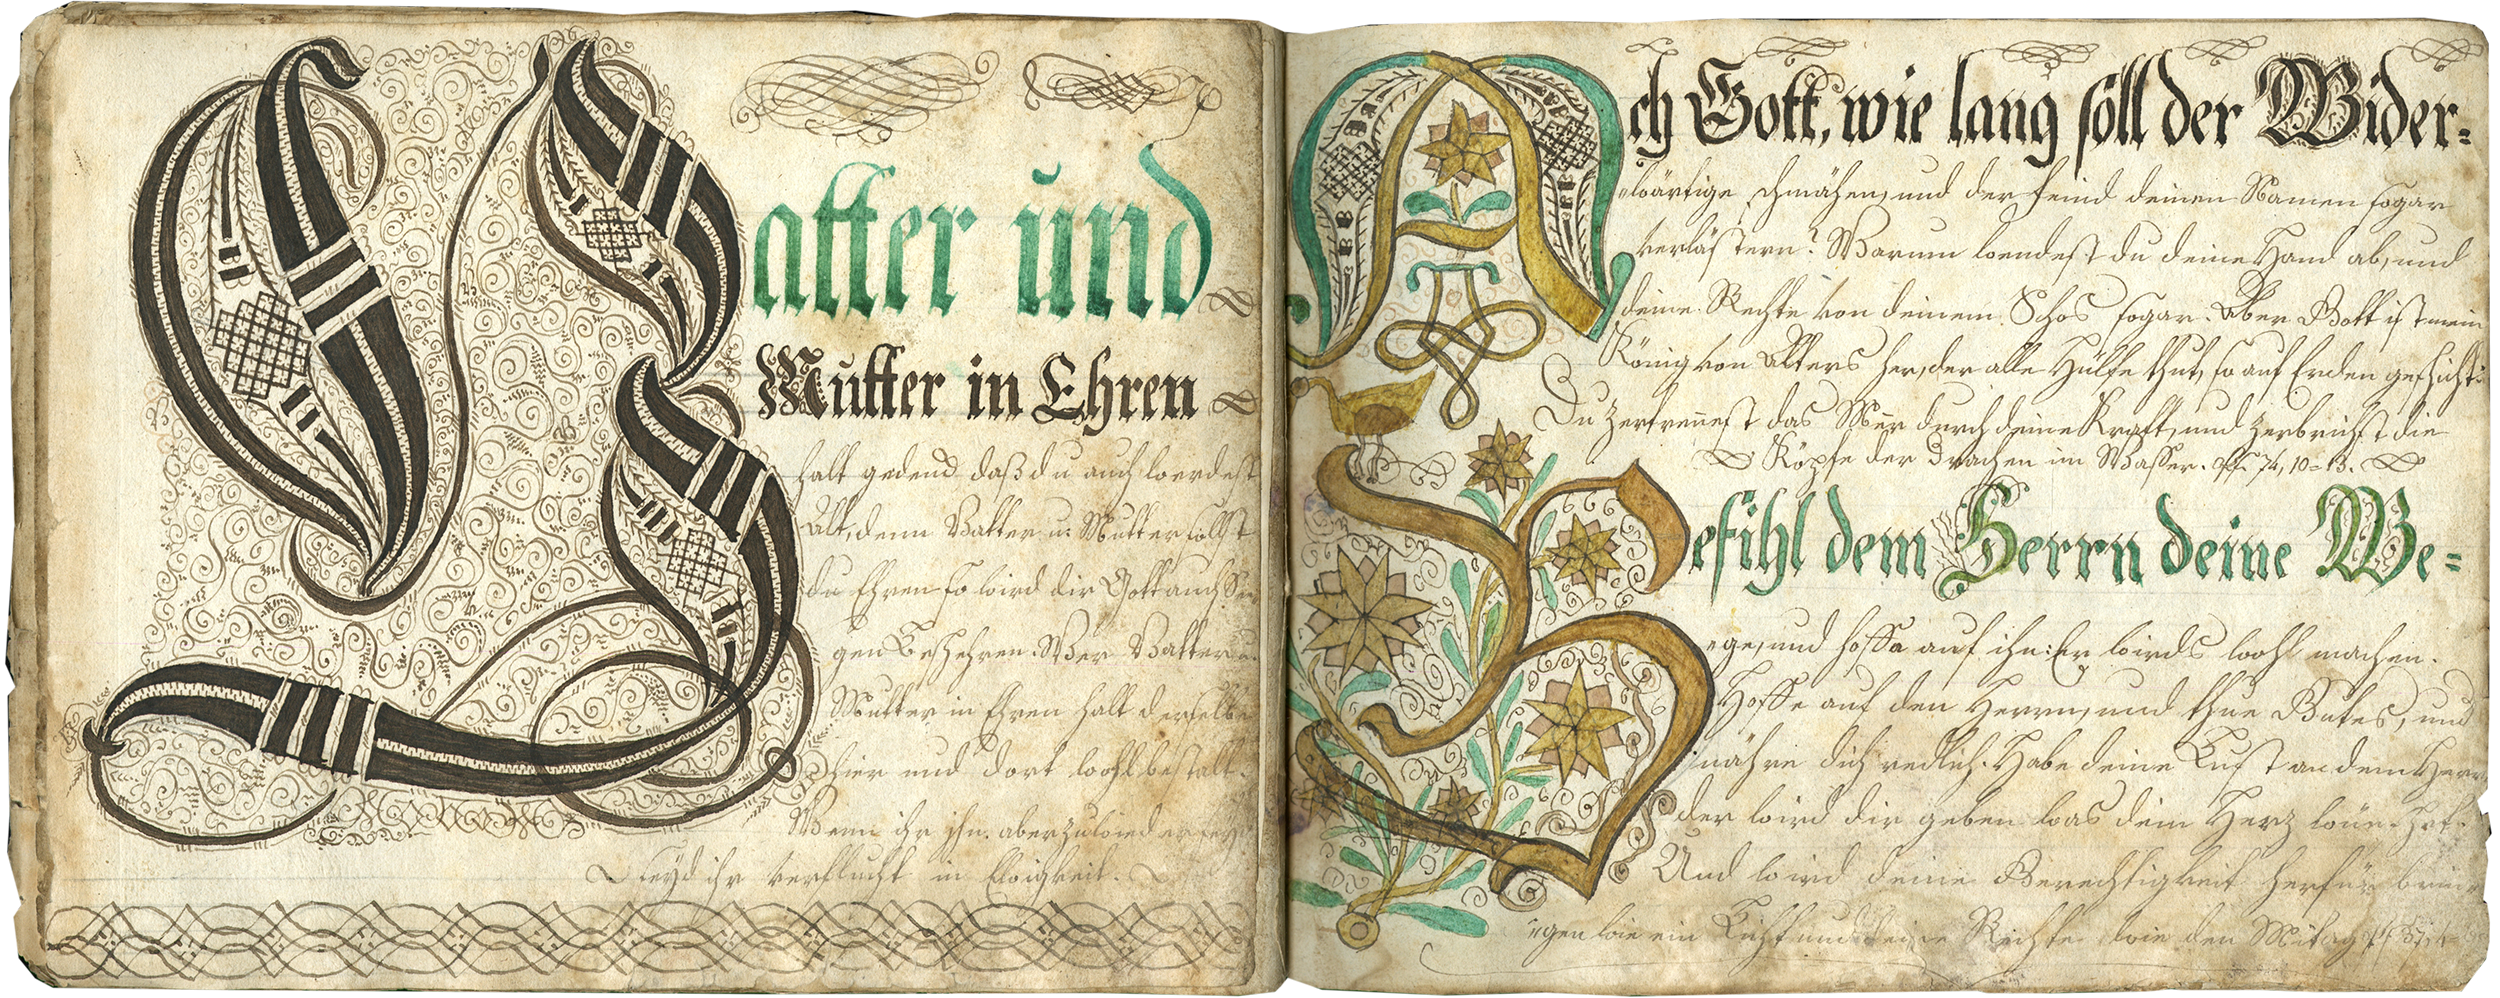 Vatter und
Mutter in Ehren
halt gedenck daß du auch werdest
Alt, denn Vatter u: Mutter sollst
du Ehren so wird dir Gott auch See
gen Beschehren. Wer Vatter u.
Mutter in Ehren halt derselbe
hier und dort wohl bestalt.
Wenn ihr ihn aber zuwieder seyd
seyd ihr verflucht in Ewigkeit.
Ach Gott, wie lang söll der Wider=
wärtige schmähen, und der feind deinen Namen sogar
verlästern? Warum wendest du deine Hand ab, und
deine Rechte von deinem Schos sogar. Aber Gott ist mein
König von Alters her, der alle Hülfe thut, so auf Erden geschicht.
Du Zertrennest das Meer durch deine Kraft, und zerbrichst die
Köpfe der Drachen im Wasser. Psf. 74, 10=13.
Befihl dem Herrn deine We=
ge, und hoffe auf ihn: Er wirds wohl machen.
Hoffe auf den Herrn, und thue Gutes, und
nähre dich redlich. Habe deine Lust an dem Herr
der wird dir geben was dein Herz wün=
Und wird deine Gerechtigkeit herfür brin
gen wie ein Licht und deine Rechte wie den Mitag